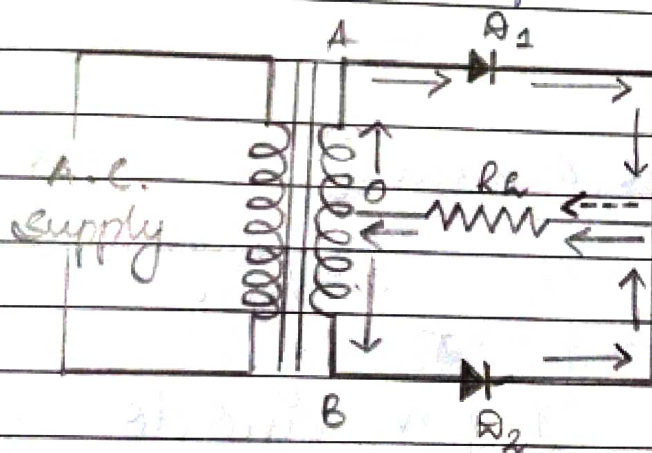 A
D1
A.C.
Supply
O
RL
B
D2